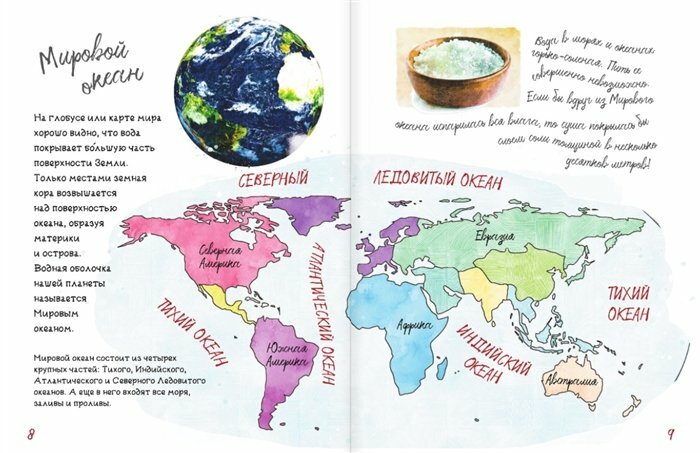 Мировой
океан
На глобусе или карте мира
хорошо видно, что вода
покрывает бо́льшую часть
поверхности Земли.
Только местами земная
кора возвышается
над поверхностью
океана, образуя
материки
и острова.
Водная оболочка
нашей планеты
называется
Мировым
океаном.
Мировой океан состоит из четырех
крупных частей: Тихого, Индийского,
Атлантического и Северного Ледовитого
океанов. А еще в него входят все моря,
заливы и проливы.
8
Вода в морях и океанах
горько-соленая. Пить ее
совершенно невозможно.
Если бы вдруг из Мирового
океана испарилась вся влага, то суша покрылась бы
слоем соли толщиной в несколько
десятков метров!
СЕВЕРНЫЙ ЛЕДОВИТЫЙ ОКЕАН
Северная
Америка
АТЛАНТИЧЕСКИЙ ОКЕАН
Евразия
ТИХИЙ ОКЕАН
ТИХИЙ
ОКЕАН
Африка
ИНДИЙСКИЙ
ОКЕАН
Южная
Америка
Австралия
9